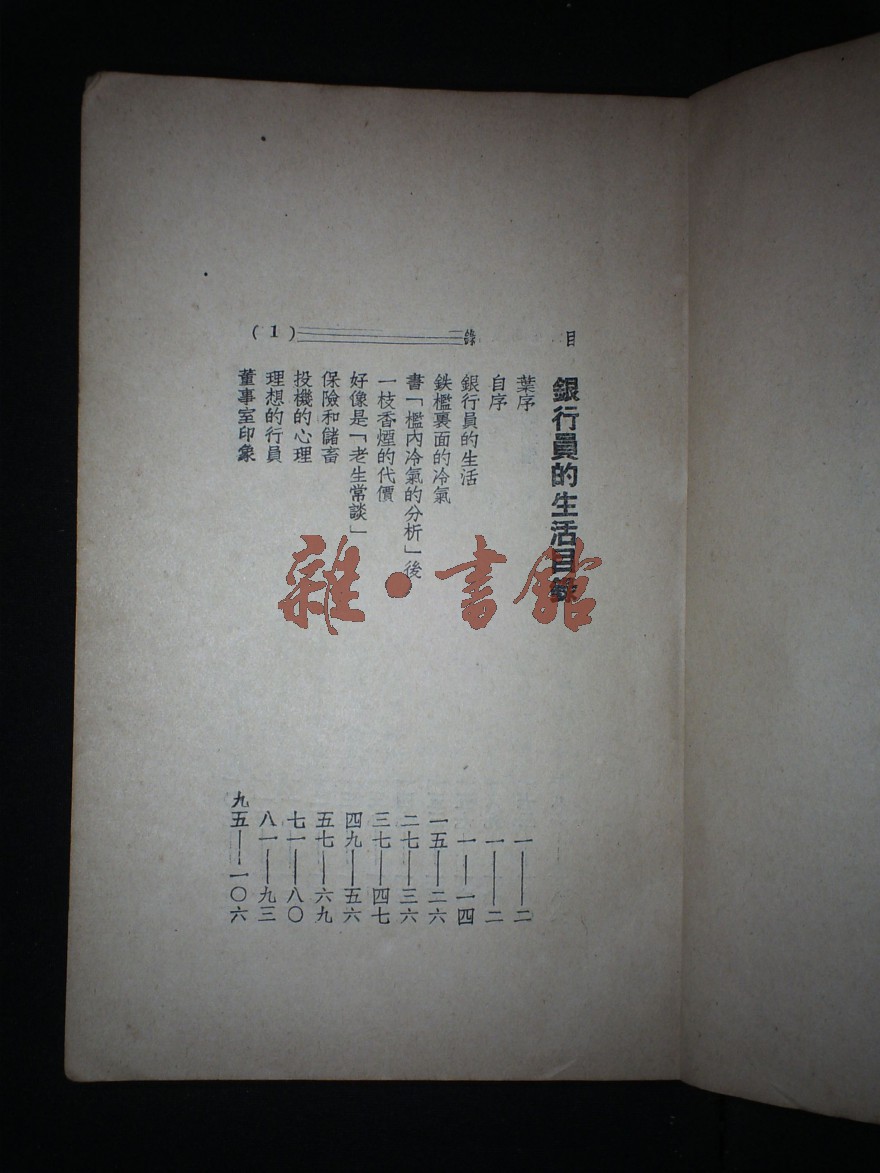 目錄 (1)
銀行員的生活目錄
葉序 一——二
自序 一——二
銀行員的生活 一——一四
鉄檻裏面的冷氣 一五——二六
書「檻內冷氣的分析」後 二七——三六
一枝香煙的代價 三七——四七
好像是「老生常談」 四九——五六
保險和儲畜 五七——六九
投機的心理 七一——八〇
理想的行員 八一——九三
董事室印象 九五——一〇六
雜·書館